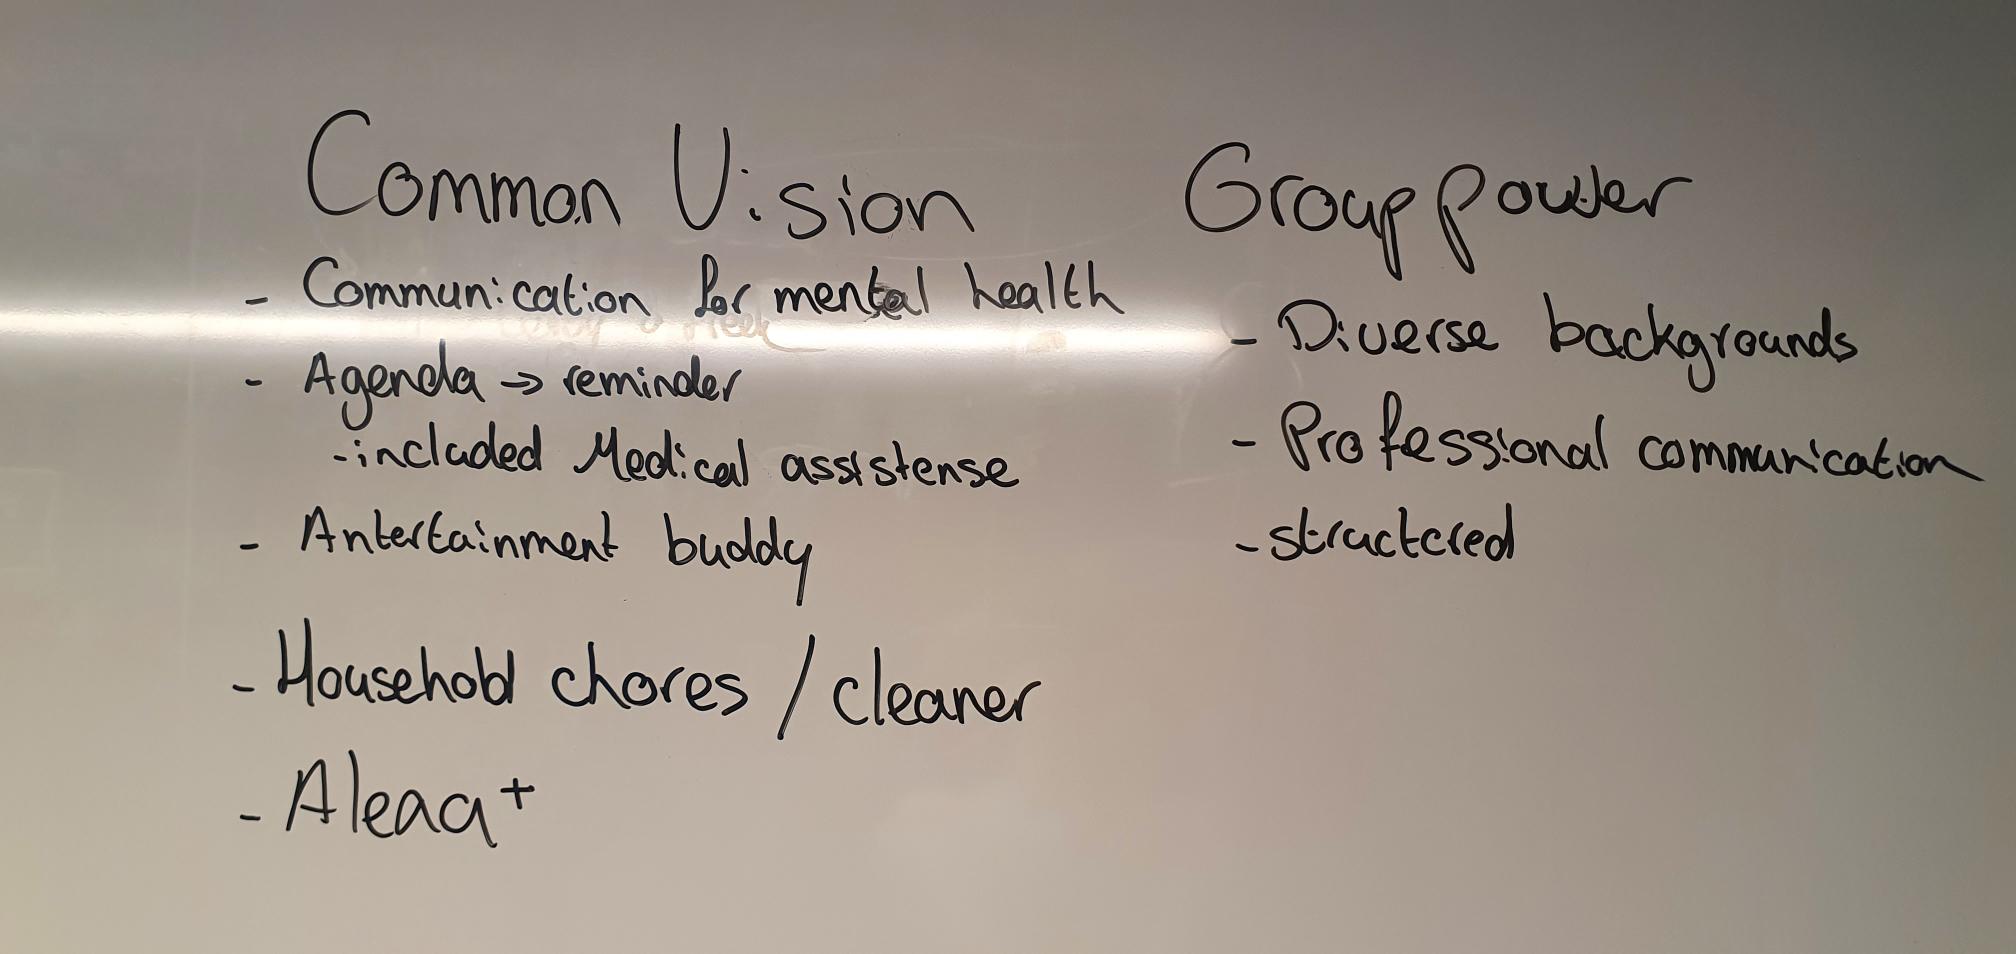 Common Vision
- Communication for mental health
- Agenda → reminder
- included Medical assistense
- Antertainment buddy
- Household chores / cleaner
- Aleaa+
Group power
- Diverse backgrounds
- Professional communication
- structered